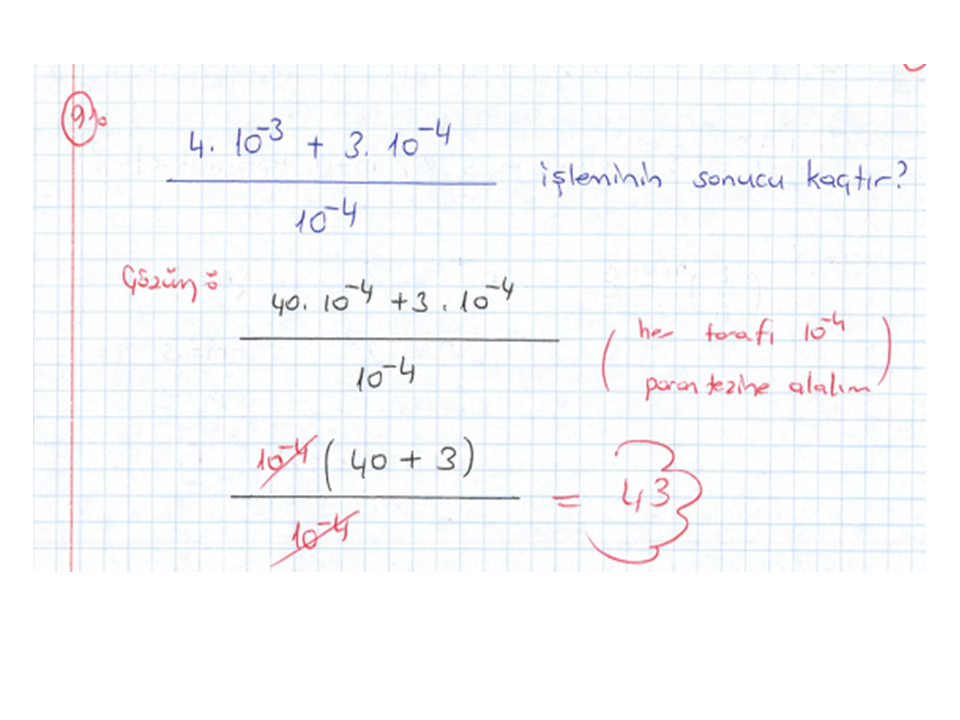 9)
4. 10⁻³ + 3. 10⁻⁴ / 10⁻⁴ işleminin sonucu kaçtır?
Çözüm:
40. 10⁻⁴ + 3 . 10⁻⁴ / 10⁻⁴
( her tarafı 10⁻⁴
parantezine alalım )
10⁻⁴ ( 40 + 3) / 10⁻⁴ = 43